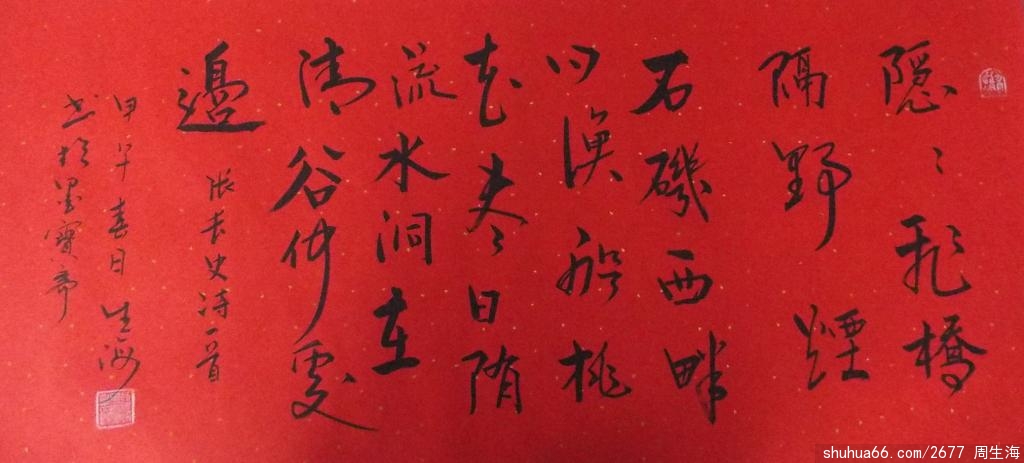 隱〻飛橋
隔野煙
石磯西畔
问漁船桃
花尽日随
流水洞在
清谷何處
邊
張長史诗一首
甲午春日生海
书於墨寶斋
shuhua66.com/2677 周生海